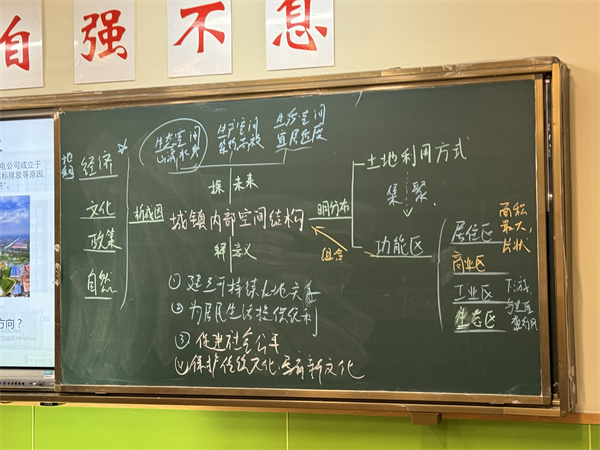 自强不息
电公司成立于
标排放等原因,
方向?
生态空间
山清水秀
生产空间
集约高效
生活空间
宜居适度
地租
经济
文化
政策
自然
析成因
探未来
城镇内部空间结构
释意义
明分布
土地利用方式
集聚
功能区
组合
居住区
面积
最大,
片状
商业区
工业区
下游
生态区
① 建立可持续人地关系
② 为居民生活提供便利
③ 促进社会公平
④ 保护传统文化,孕育新文化